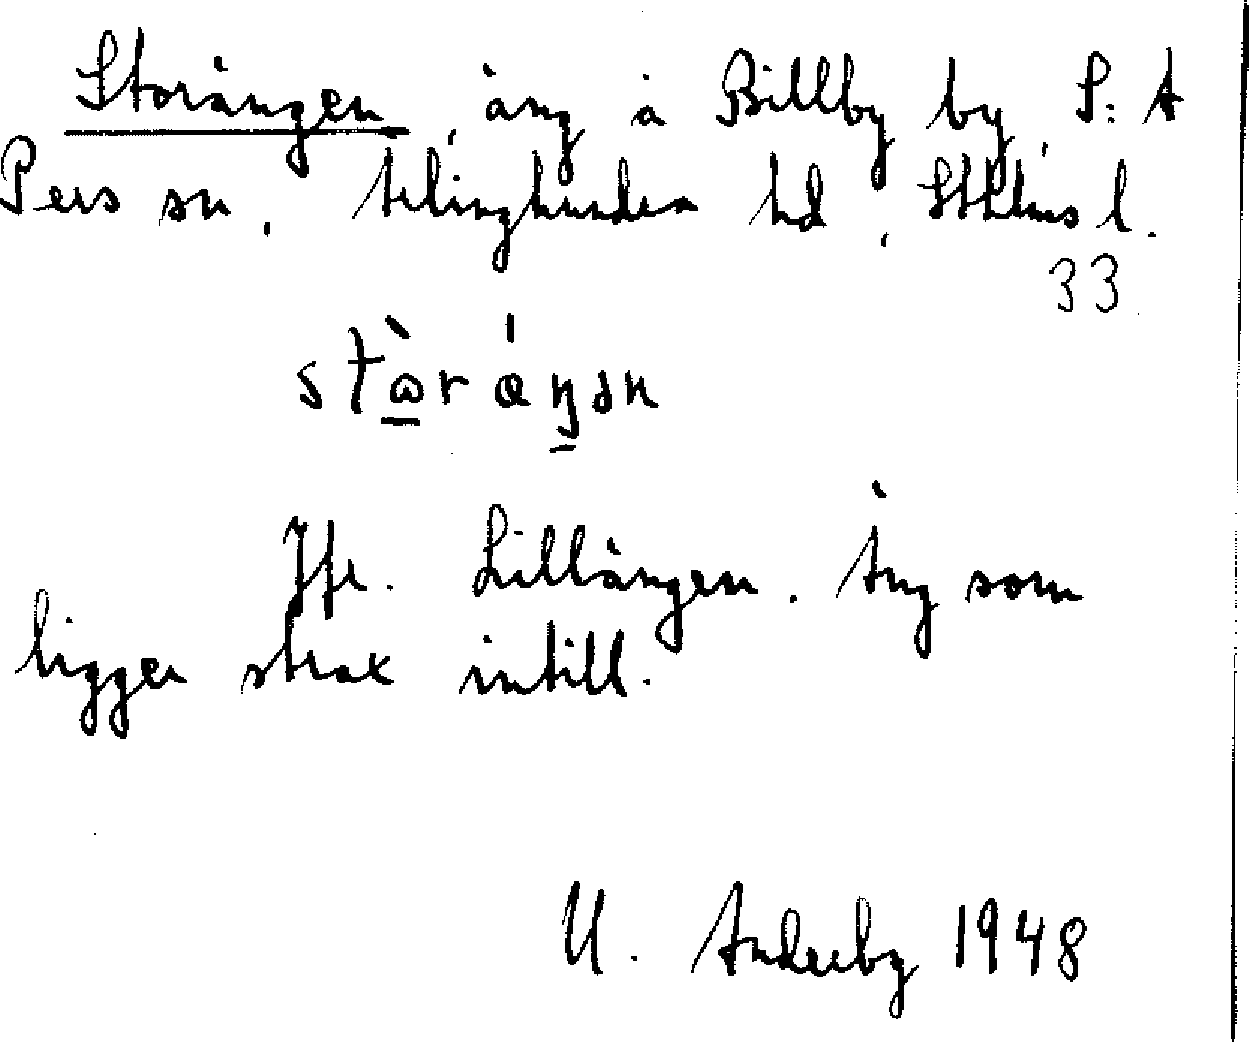 Storängen, äng å Billby by, S:t
Pers sn, Ärlinghundra hd, Sthlms l.
33
stὼr ǽŋən
Jfr. Lillängen. Äng som
ligger strax intill.
U. Anderby 1948